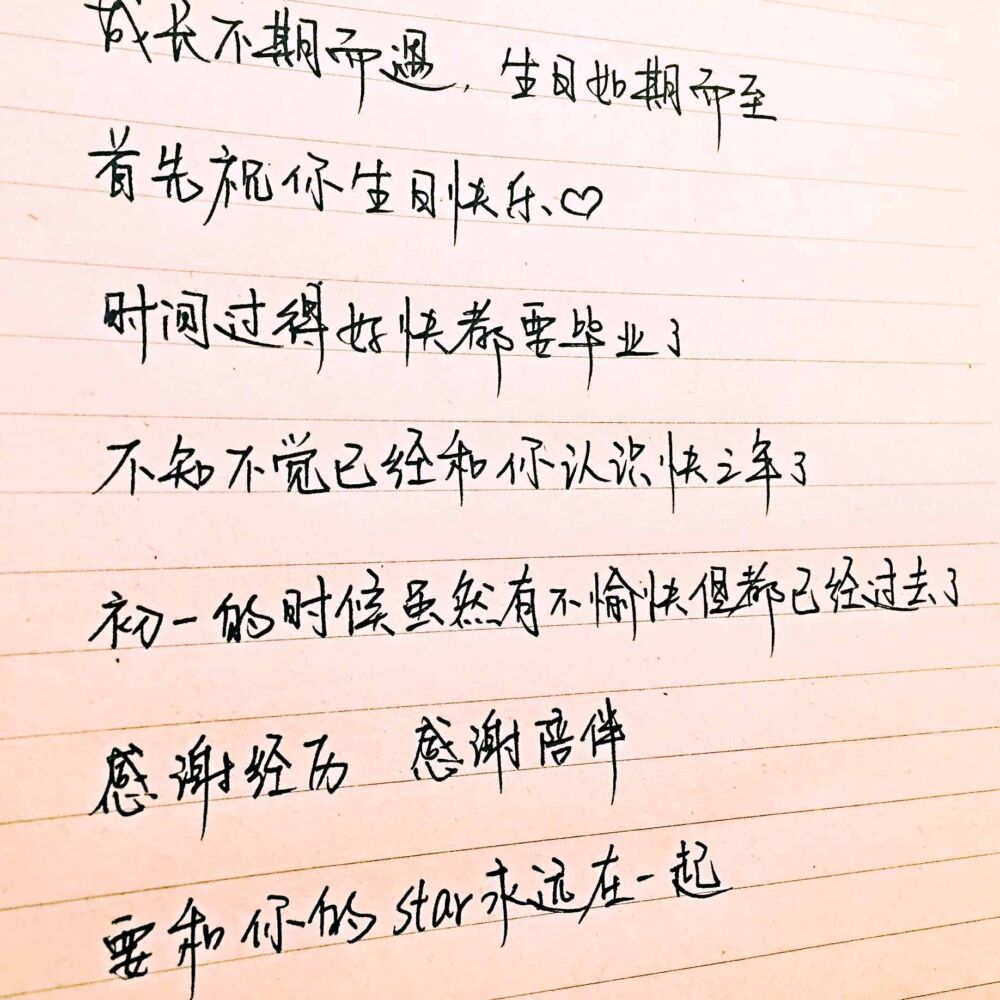 成长不期而遇，生日如期而至
首先祝你生日快乐、♡
时间过得好快都要毕业了
不知不觉已经和你认识快三年了
初一的时候虽然有不愉快但都已经过去了
感谢经历 感谢陪伴
要和你的star永远在一起